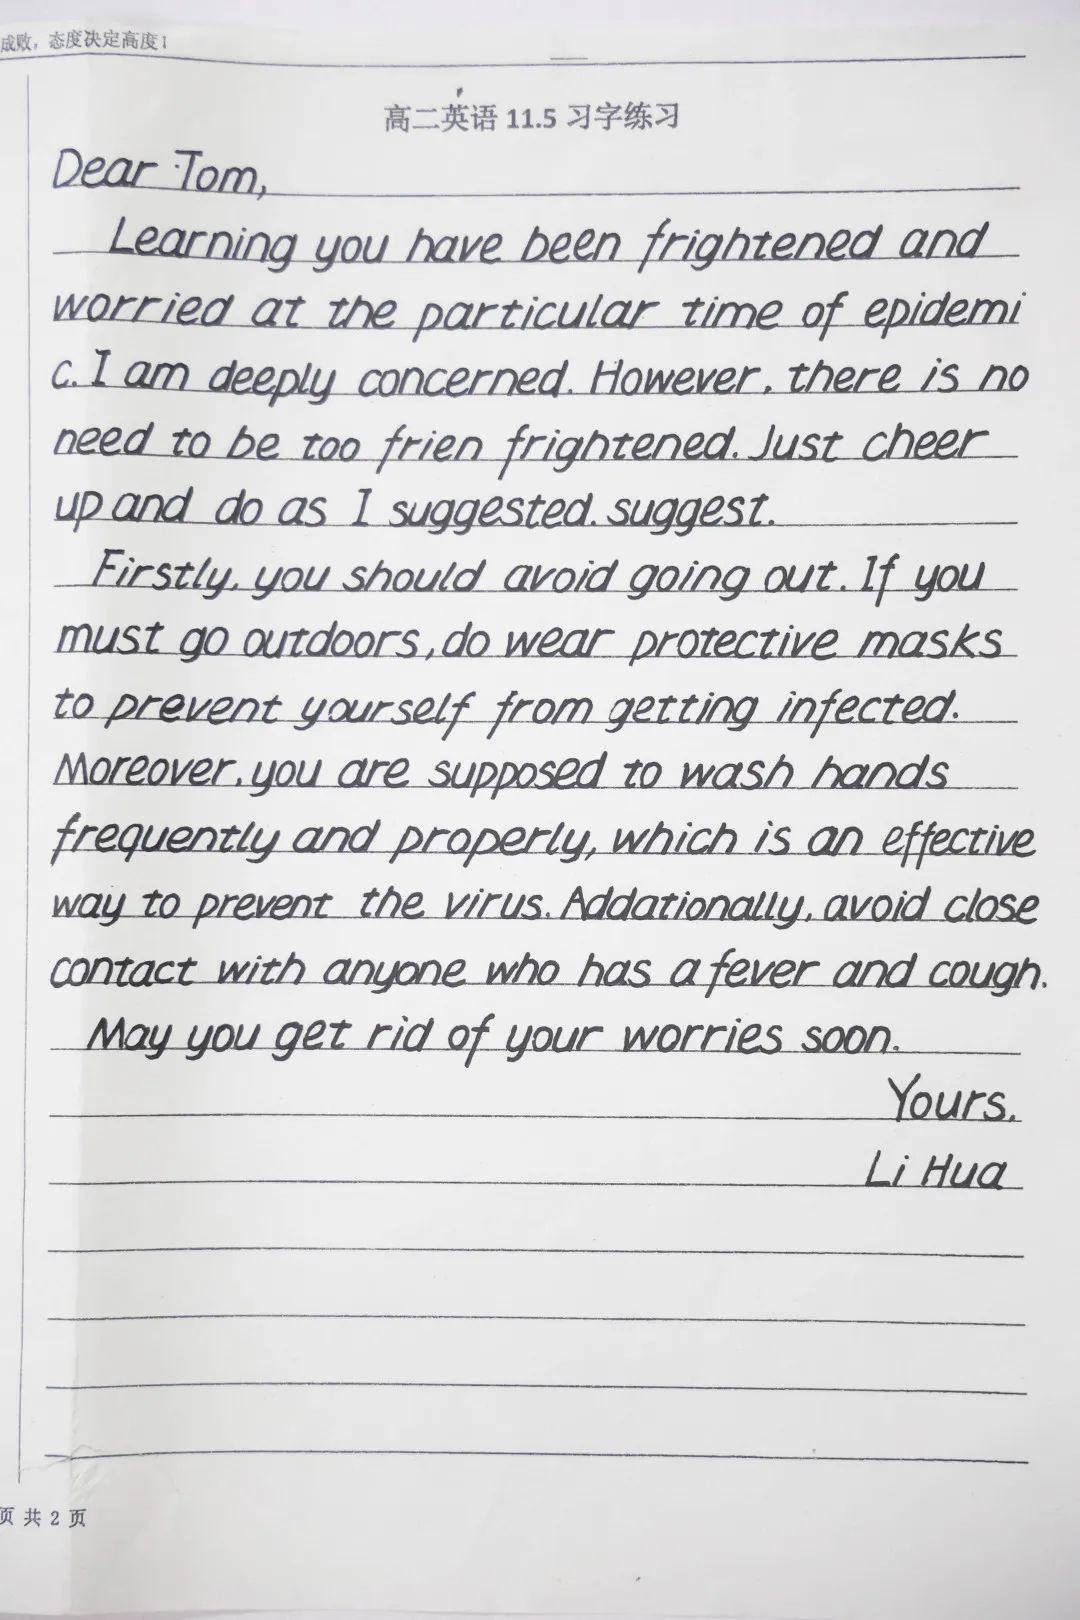 成败，态度决定高度！
高二英语 11.5 习字练习
Dear Tom,
Learning you have been frightened and
worried at the particular time of epidemi
c. I am deeply concerned. However, there is no
need to be too frien frightened. Just cheer
up and do as I suggested. suggest.
Firstly, you should avoid going out. If you
must go outdoors, do wear protective masks
to prevent yourself from getting infected.
Moreover, you are supposed to wash hands
frequently and properly, which is an effective
way to prevent the virus. Addationally, avoid close
contact with anyone who has a fever and cough.
May you get rid of your worries soon.
Yours,
Li Hua
页 共 2 页